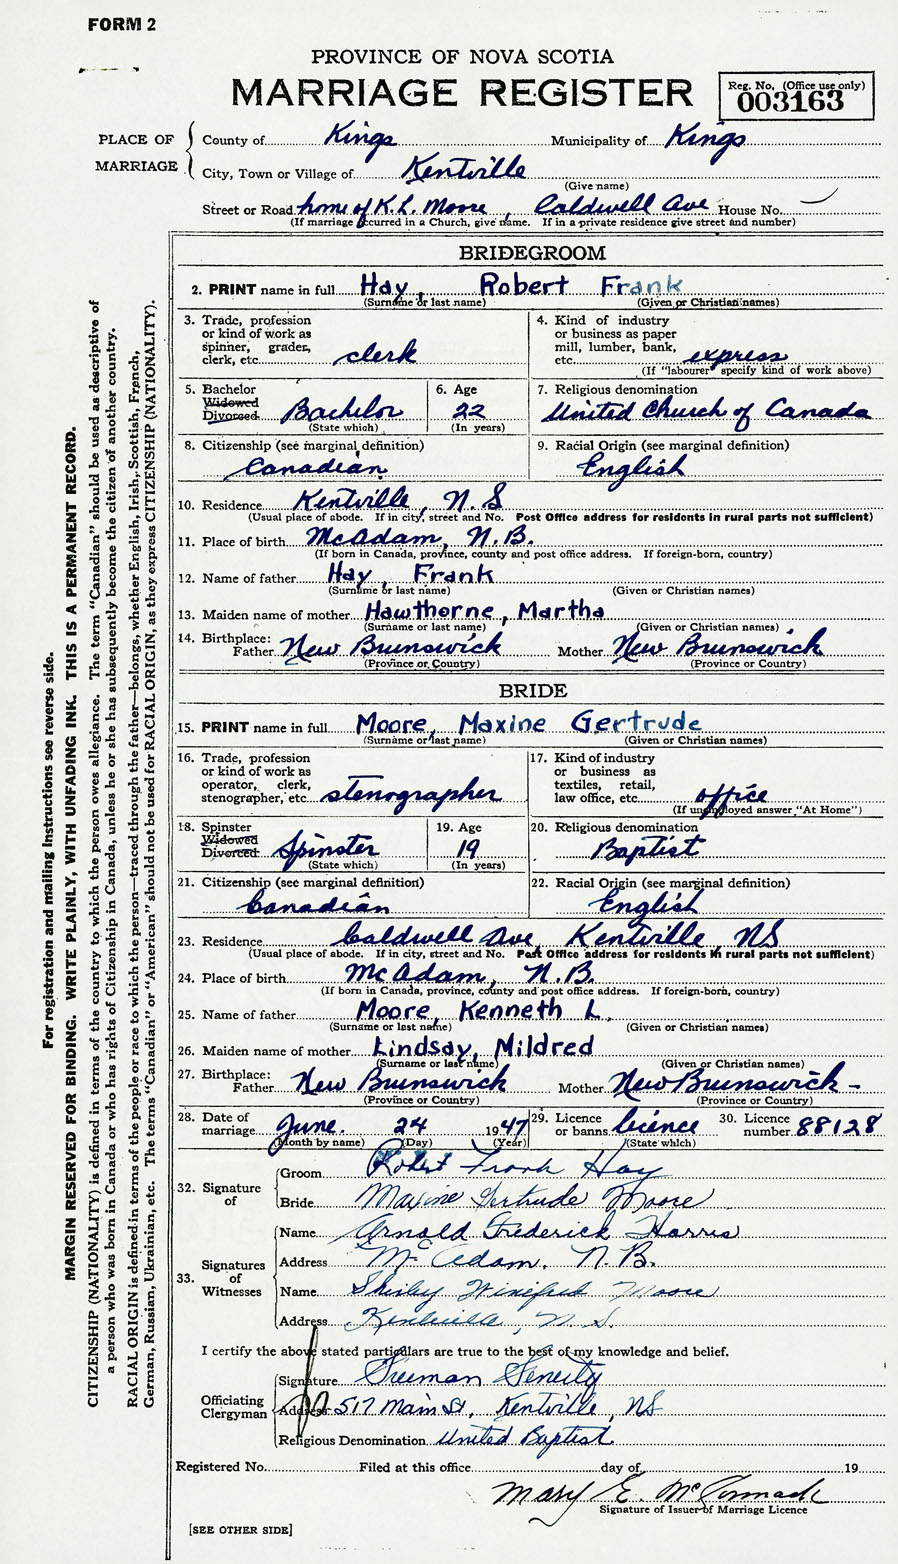 FORM 2
PROVINCE OF NOVA SCOTIA
MARRIAGE REGISTER
Reg. No. (Office use only)
003163
PLACE OF MARRIAGE
County of Kings Municipality of Kings
City, Town or Village of Kentville
(Give name)
Street or Road home of K.L. Moore, Caldwell Ave House No.
(If marriage occurred in a Church, give name. If in a private residence give street and number)
BRIDEGROOM
2. PRINT name in full Hay, Robert Frank
(Surname or last name) (Given or Christian names)
3. Trade, profession or kind of work as spinner, grader, clerk, etc. clerk
4. Kind of industry or business as paper mill, lumber, bank, etc. express
(If "labourer" specify kind of work above)
5. Bachelor Widowed Divorced Bachelor
(State which)
6. Age 22
(In years)
7. Religious denomination
United Church of Canada
8. Citizenship (see marginal definition)
Canadian
9. Racial Origin (see marginal definition)
English
10. Residence Kentville, N.S
(Usual place of abode. If in city, street and No. Post Office address for residents in rural parts not sufficient)
11. Place of birth McAdam, N.B.
(If born in Canada, province, county and post office address. If foreign-born, country)
12. Name of father Hay, Frank
(Surname or last name) (Given or Christian names)
13. Maiden name of mother Hawthorne, Martha
(Surname or last name) (Given or Christian names)
14. Birthplace: Father New Brunswick Mother New Brunswick
(Province or Country) (Province or Country)
BRIDE
15. PRINT name in full Moore, Maxine Gertrude
(Surname or last name) (Given or Christian names)
16. Trade, profession or kind of work as operator, clerk, stenographer, etc. stenographer
17. Kind of industry or business as textiles, retail, law office, etc. office
(If unemployed answer "At Home")
18. Spinster Widowed Divorced Spinster
(State which)
19. Age 19
(In years)
20. Religious denomination
Baptist
21. Citizenship (see marginal definition)
Canadian
22. Racial Origin (see marginal definition)
English
23. Residence Caldwell Ave, Kentville, NS
(Usual place of abode. If in city, street and No. Post Office address for residents in rural parts not sufficient)
24. Place of birth McAdam, N.B.
(If born in Canada, province, county and post office address. If foreign-born, country)
25. Name of father Moore, Kenneth L.
(Surname or last name) (Given or Christian names)
26. Maiden name of mother Lindsay, Mildred
(Surname or last name) (Given or Christian names)
27. Birthplace: Father New Brunswick Mother New Brunswick -
(Province or Country) (Province or Country)
28. Date of marriage June 24 1947
(Month by name) (Day) (Year)
29. Licence or banns licence
(State which)
30. Licence number 88128
32. Signature of
Groom Robert Frank Hay
Bride Maxine Gertrude Moore
33. Signatures of Witnesses
Name Arnold Frederick Harris
Address McAdam, N.B.
Name Shirley Winifred Moore
Address Kentville, N.S.
I certify the above stated particulars are true to the best of my knowledge and belief.
Officiating Clergyman
Signature Freeman Fenerty
Address 517 Main St, Kentville, NS
Religious Denomination United Baptist
Registered No. Filed at this office day of 19
Mary E. McCormack
Signature of Issuer of Marriage Licence
[SEE OTHER SIDE]
For registration and mailing instructions see reverse side.
MARGIN RESERVED FOR BINDING. WRITE PLAINLY, WITH UNFADING INK. THIS IS A PERMANENT RECORD.
CITIZENSHIP (NATIONALITY) is defined in terms of the country to which the person owes allegiance. The term "Canadian" should be used as descriptive of
a person who was born in Canada or who has rights of Citizenship in Canada, unless he or she has subsequently become the citizen of another country.
RACIAL ORIGIN is defined in terms of the people or race to which the person—traced through the father—belongs, whether English, Irish, Scottish, French,
German, Russian, Ukrainian, etc. The terms "Canadian" or "American" should not be used for RACIAL ORIGIN, as they express CITIZENSHIP (NATIONALITY).